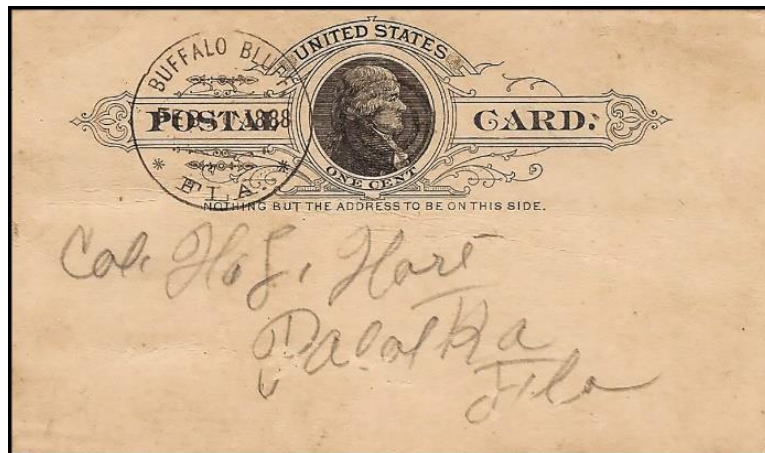 BUFFALO BLUFF
FEB 1888
FLA.
UNITED STATES
POSTAL CARD.
ONE CENT
NOTHING BUT THE ADDRESS TO BE ON THIS SIDE.
Col. H. L. Hart
Palatka
Fla